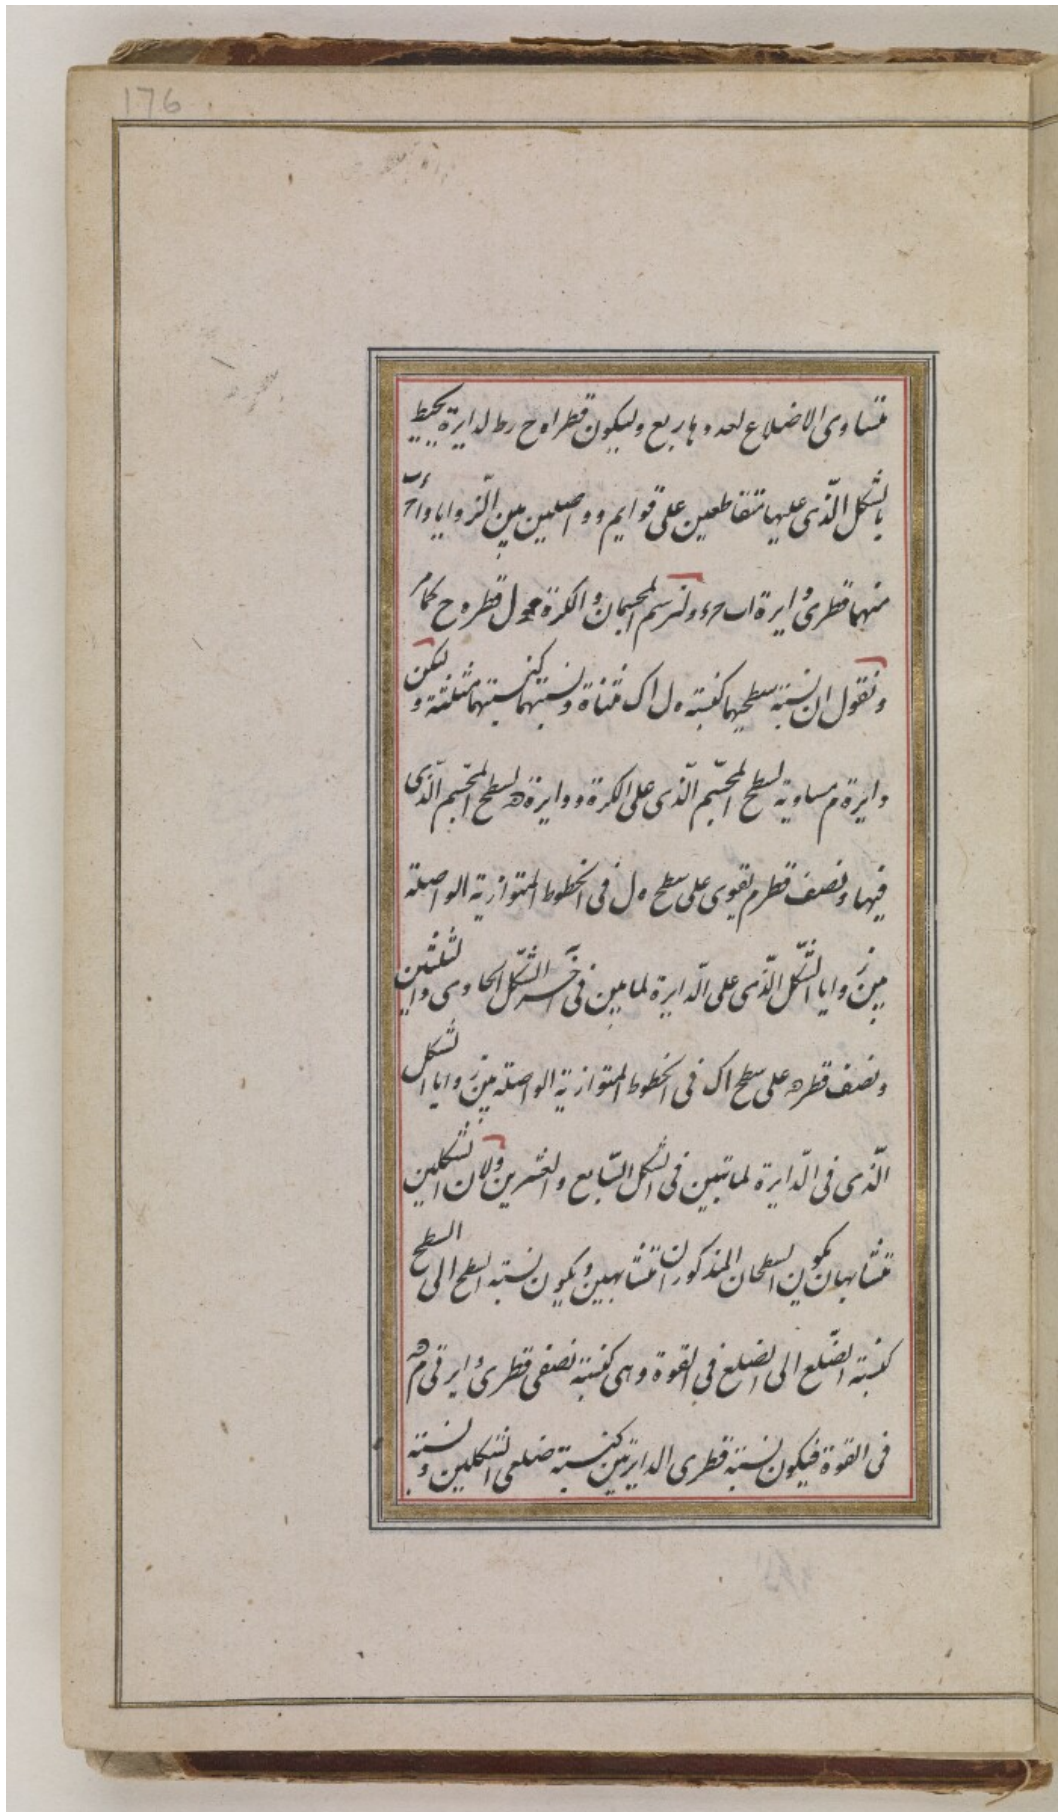 176
متساوى الاضلاع لعددها ربع وليكون قطرا ه ح ر ط لدايرة يحيط
بالشكل الذى عليها متقاطعين على قوايم وواصلين بين الزوايا و ا ح ب ء
منهما قطرى دايرة ا ب ح ء ولنرسم المجسمان والكرة حول قطر ه ح كما مر
ونقول ان نسبة سطحيهما كنسبة ه ل ا ك مثناة ونسبتهما كنسبتهما مثلثة وليكن
دايرة م مساوية لسطح المجسم الذى على الكرة ودايرة ه لسطح المجسم الذى
فيها ونصف قطر م يقوى على سطح ه ل فى الخطوط المتوازية الواصلة
بين زوايا الشكل الذى على الدايرة لما بين فى آخر الشكل الحادى والثلثين
ونصف قطر ه على سطح ا ك فى الخطوط المتوازية الواصلة بين زوايا الشكل
الذى فى الدايرة لما تبين فى الشكل السابع والعشرين ولان الشكلين
متشابهان يكون السطحان المذكوران متشابهين ويكون نسبة السطح الى السطح
كنسبة الضلع الى الضلع فى القوة وهى كنسبة نصفى قطرى دايرتى م ه
فى القوة فيكون نسبة قطرى الدايرتين كنسبة ضلعى الشكلين ونسبة